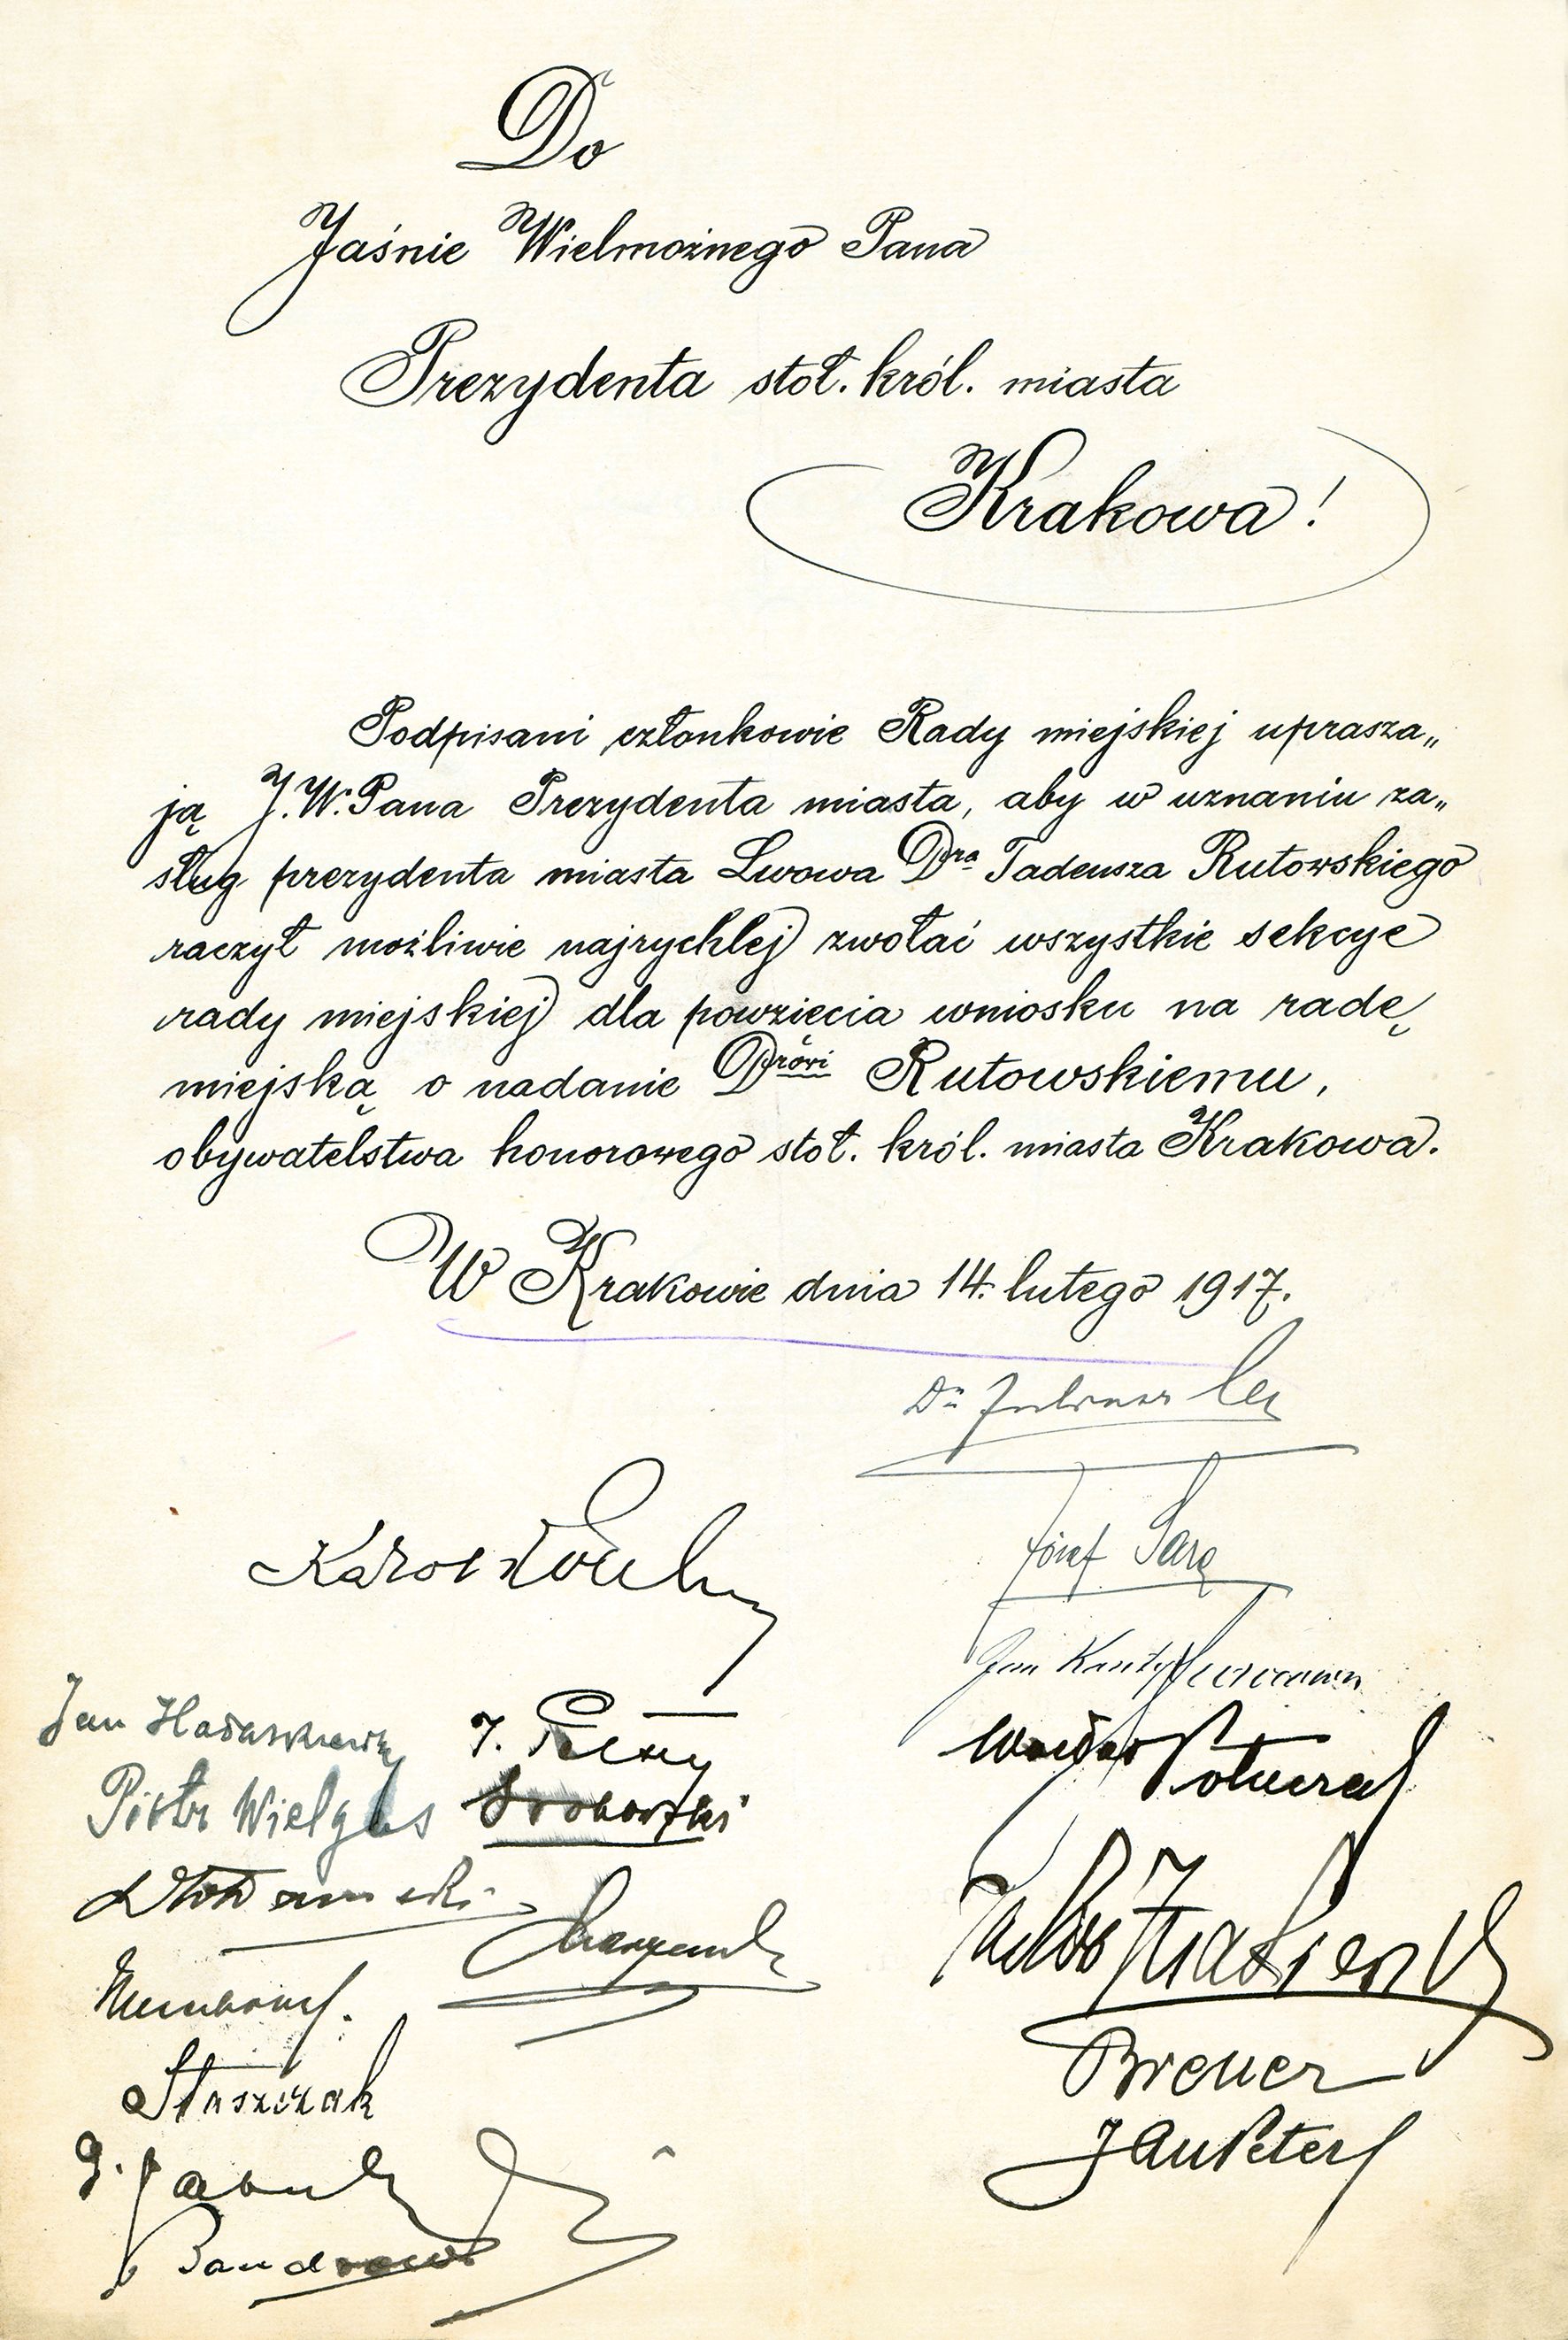 Do
Jaśnie Wielmożnego Pana
Prezydenta stoł. król. miasta
Krakowa!
Podpisani członkowie Rady miejskiej uprasza„
ją J.W. Pana Prezydenta miasta, aby w uznaniu za„
sług prezydenta miasta Lwowa Dra Tadeusza Rutowskiego
raczył możliwie najrychlej zwołać wszystkie sekcye
rady miejskiej dla powzięcia wniosku na radę
miejską o nadanie Drowi Rutowskiemu,
obywatelstwa honorowego stoł. król. miasta Krakowa.
W Krakowie dnia 14. lutego 1917.
Dr Juliusz Leo
Józef Sare
Karol
Jan Kanty Federowicz
Jan
J.
Piotr Wielgus
Staszczak
Breuer
Jan Peters